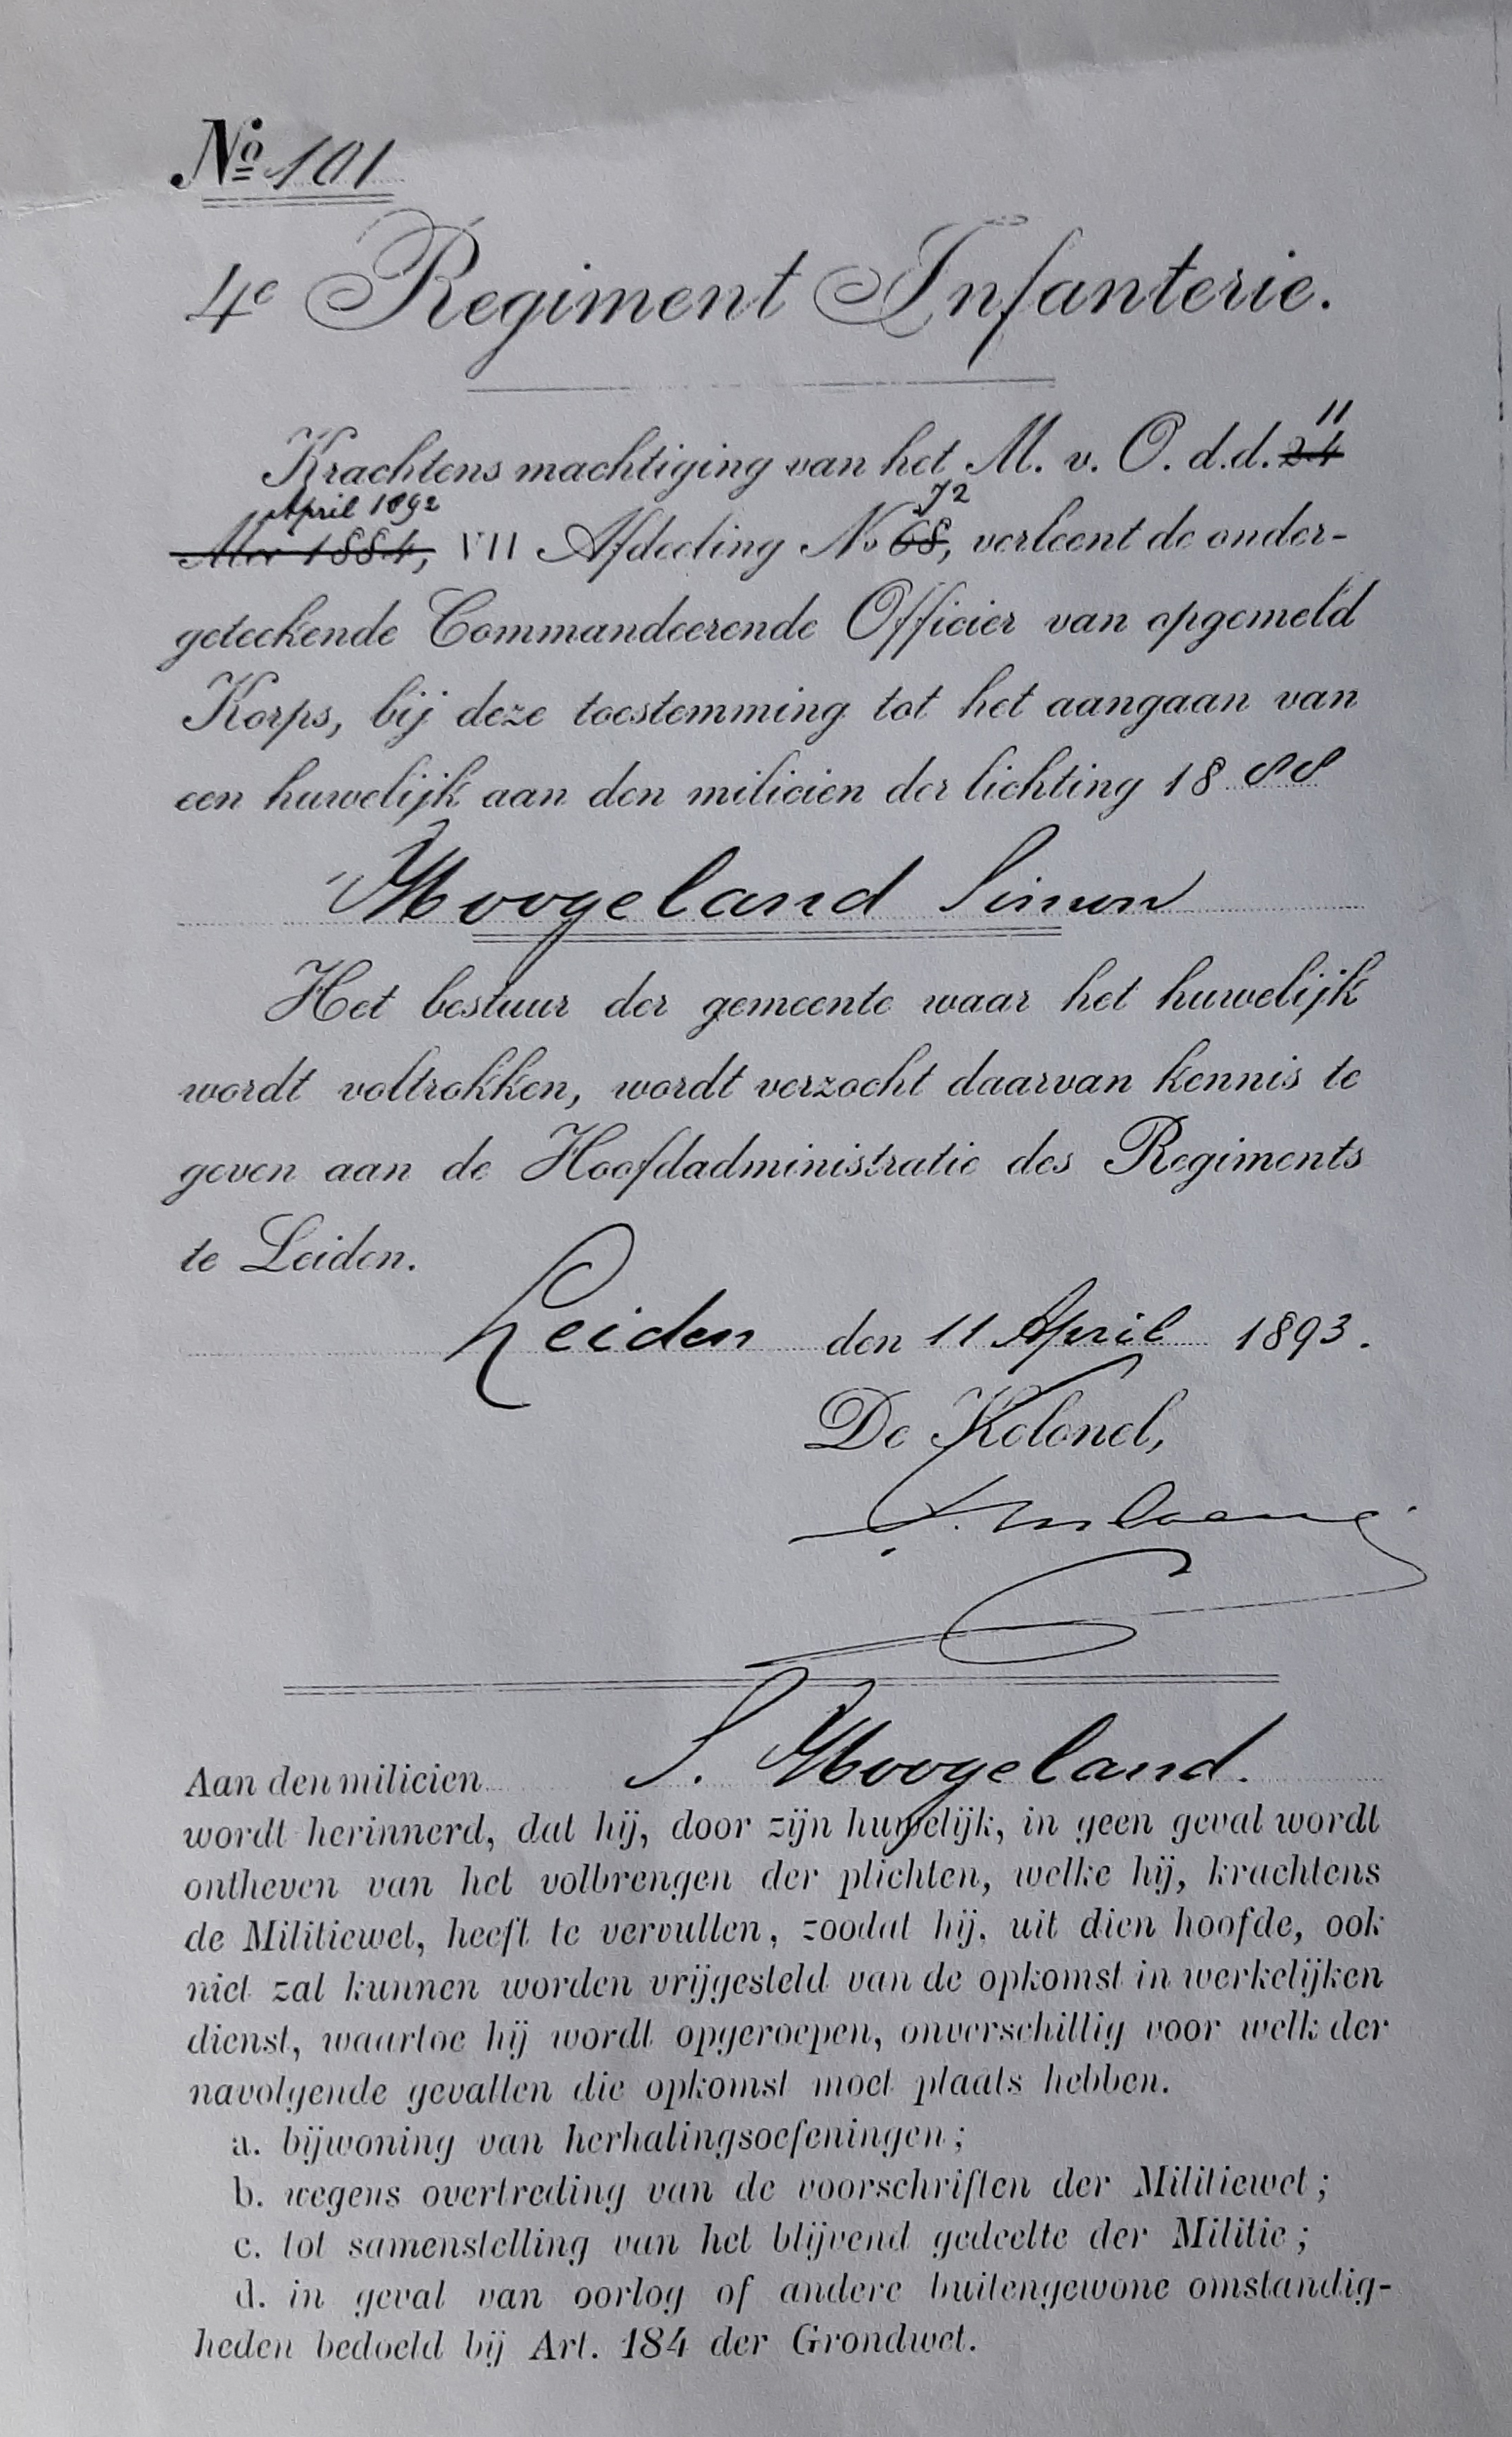 No 101
4e Regiment Infanterie.
Krachtens machtiging van het M. v. O. d.d. 24 11
Mei 1884, April 1892 VII Afdeeling No 68, 72 verleent de onder-
geteekende Commandeerende Officier van opgemeld
Korps, bij deze toestemming tot het aangaan van
een huwelijk aan den milicien der lichting 1888
Hoogeland Simon
Het bestuur der gemeente waar het huwelijk
wordt voltrokken, wordt verzocht daarvan kennis te
geven aan de Hoofdadministratie des Regiments
te Leiden.
Leiden den 11 April 1893.
De Kolonel,
S. Hoogeland.
Aan den milicien
wordt herinnerd, dat hij, door zijn huwelijk, in geen geval wordt
ontheven van het volbrengen der plichten, welke hij, krachtens
de Militiewet, heeft te vervullen, zoodat hij, uit dien hoofde, ook
niet zal kunnen worden vrijgesteld van de opkomst in werkelijken
dienst, waartoe hij wordt opgeroepen, onverschillig voor welk der
navolgende gevallen die opkomst moet plaats hebben.
a. bijwoning van herhalingsoefeningen;
b. wegens overtreding van de voorschriften der Militiewet;
c. tot samenstelling van het blijvend gedeelte der Militie;
d. in geval van oorlog of andere buitengewone omstandig-
heden bedoeld bij Art. 184 der Grondwet.